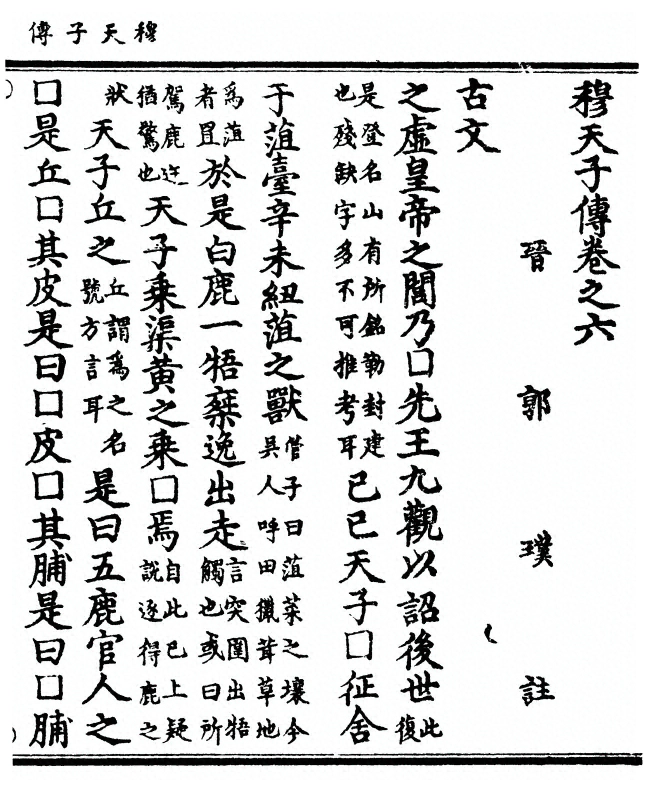 穆天子傳
穆天子傳卷之六
晉 郭 璞 註
古文
之虛皇帝之閭乃□先王九觀以詔後世此復
是登名山有所銘勒封建也殘缺字多不可推考耳己巳天子□征舍
于菹臺辛未紐菹之獸管子曰菹菜之壤今吳人呼田獵茸草地
爲菹者罝於是白鹿一牾椉逸出走言突圍出牾觸也或曰所
駕鹿迮猶驚也天子乘渠黃之乘□焉自此已上疑說逐得鹿之
狀天子丘之丘謂爲之名號方言耳是曰五鹿官人之
□是丘□其皮是曰□皮□其脯是曰□脯